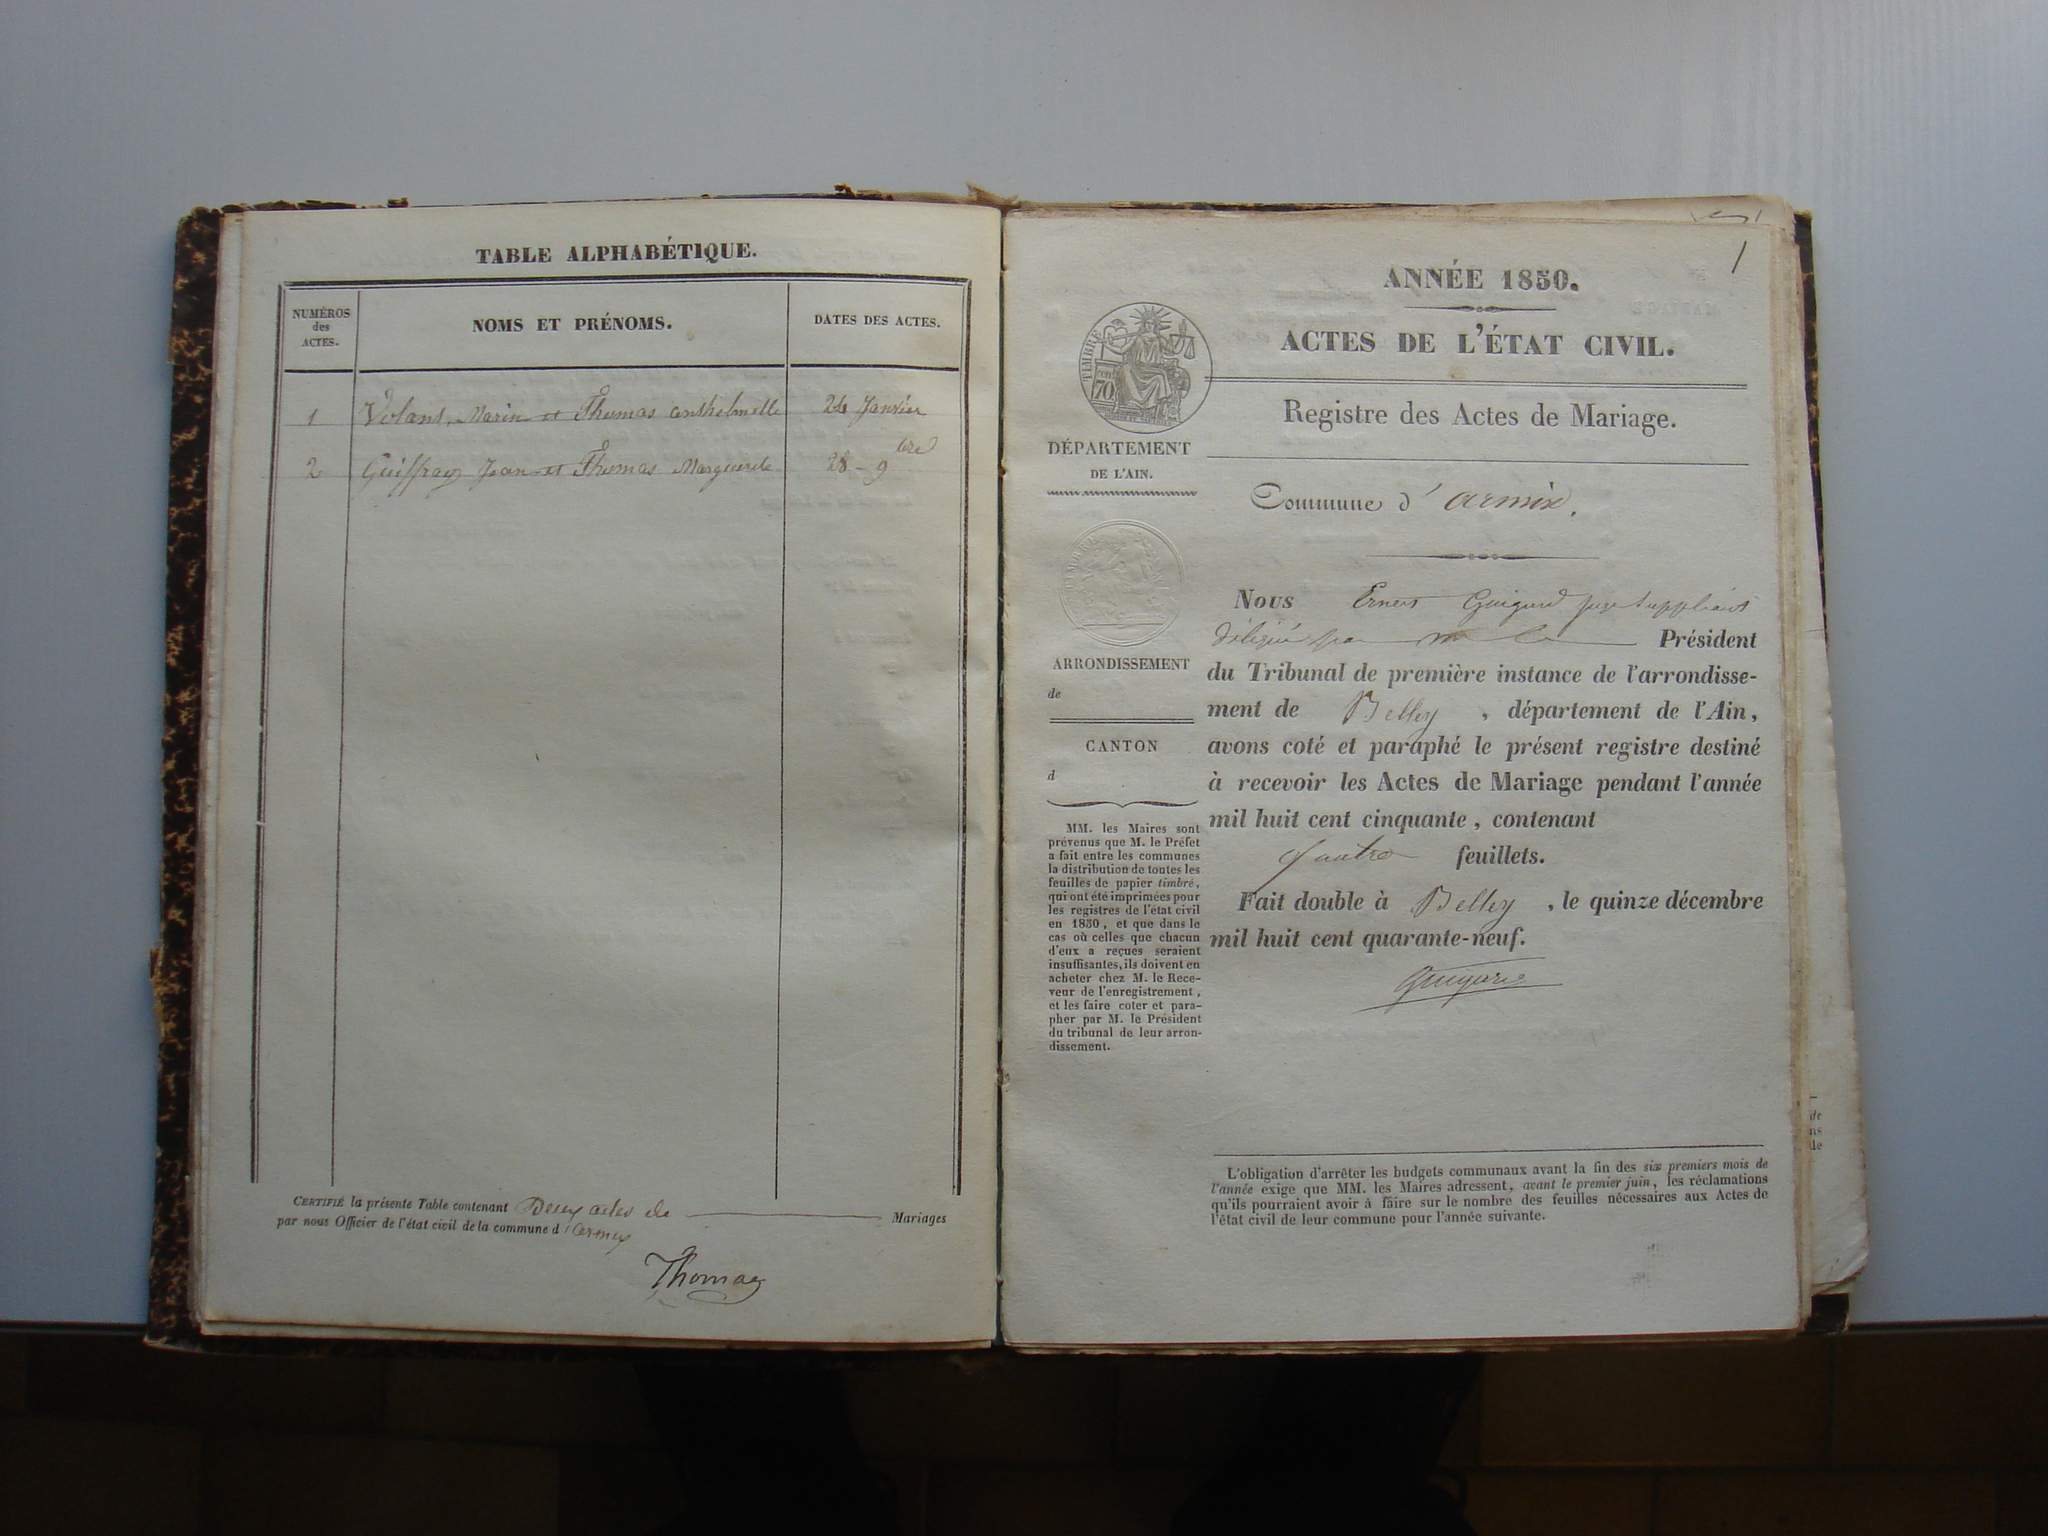 TABLE ALPHABÉTIQUE.
NUMÉROS
des
ACTES.
NOMS ET PRÉNOMS.
DATES DES ACTES.
1 Volans, Marin et Thomas anthelmette 24 Janvier
2 Guiffray Jean et Thomas Marguerite 28 - 9bre
CERTIFIÉ la présente Table contenant Deux actes de Mariages
par nous Officier de l'état civil de la commune d'armix
Thomas
1
ANNÉE 1850.
ACTES DE L'ÉTAT CIVIL.
Registre des Actes de Mariage.
TIMBRE
70
DÉPARTEMENT
DE L'AIN.
ARRONDISSEMENT
de
CANTON
d
MM. les Maires sont
prévenus que M. le Préfet
a fait entre les communes
la distribution de toutes les
feuilles de papier timbré,
qui ont été imprimées pour
les registres de l'état civil
en 1850, et que dans le
cas où celles que chacun
d'eux a reçues seraient
insuffisantes, ils doivent en
acheter chez M. le Rece-
veur de l'enregistrement,
et les faire coter et para-
pher par M. le Président
du tribunal de leur arron-
dissement.
Commune d'armix.
Nous Ernest Guigard juge suppléant
délégué par M. le Président
du Tribunal de première instance de l'arrondisse-
ment de Belley, département de l'Ain,
avons coté et paraphé le présent registre destiné
à recevoir les Actes de Mariage pendant l'année
mil huit cent cinquante, contenant
quatre feuillets.
Fait double à Belley, le quinze décembre
mil huit cent quarante-neuf.
Guigard
L'obligation d'arrêter les budgets communaux avant la fin des six premiers mois de
l'année exige que MM. les Maires adressent, avant le premier juin, les réclamations
qu'ils pourraient avoir à faire sur le nombre des feuilles nécessaires aux Actes de
l'état civil de leur commune pour l'année suivante.